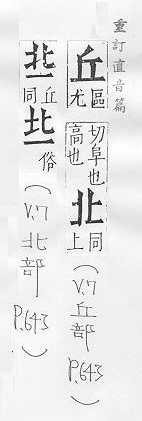 重訂直音篇
丘區尤切阜也高也北同上(V.7丘部P.643)
丠丘同丠俗(V.7北部P.643)